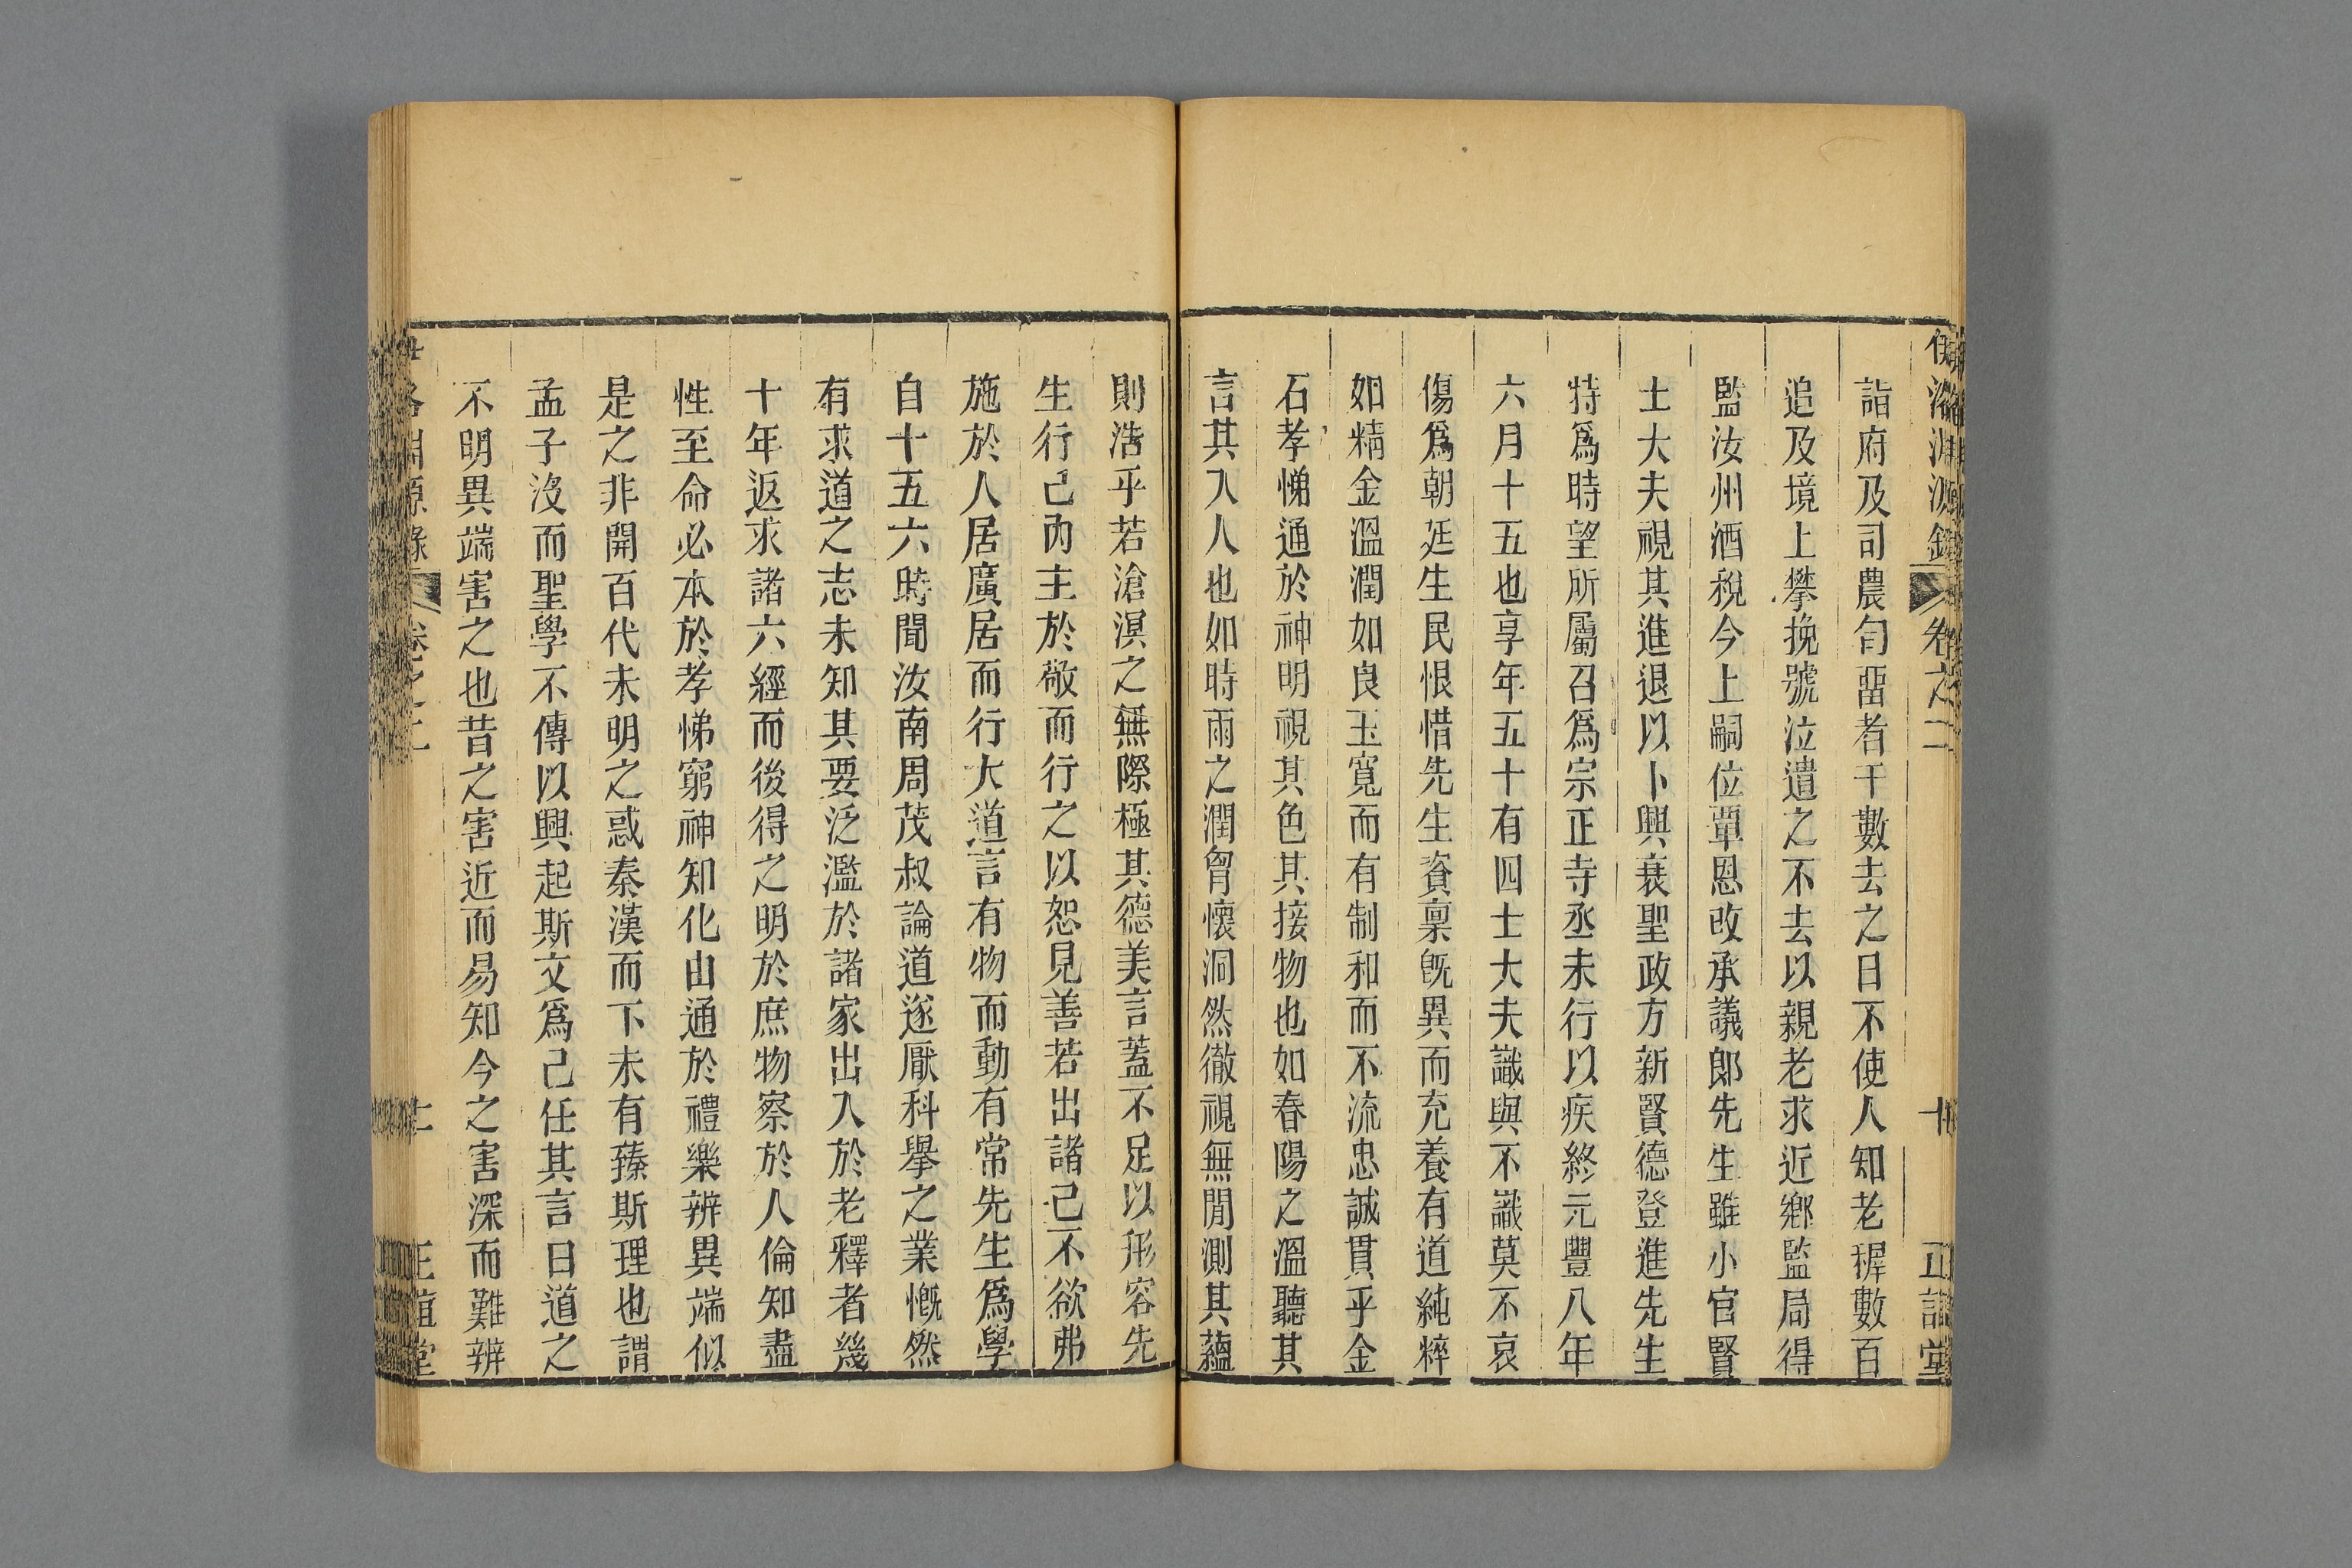 伊洛淵源錄 卷之二 十 正誼堂
詣府及司農匄畱者千數去之日不使人知老穉數百
追及境上攀挽號泣遣之不去以親老求近鄉監局得
監汝州酒稅今上嗣位覃恩改承議郎先生雖小官賢
士大夫視其進退以卜興衰聖政方新賢德登進先生
特爲時望所屬召爲宗正寺丞未行以疾終元豐八年
六月十五也享年五十有四士大夫識與不識莫不哀
傷爲朝廷生民恨惜先生資稟旣異而充養有道純粹
如精金溫潤如良玉寬而有制和而不流忠誠貫乎金
石孝悌通於神明視其色其接物也如春陽之溫聽其
言其入人也如時雨之潤胷懷洞然徹視無間測其蘊
則浩乎若滄溟之無際極其德美言蓋不足以形容先
生行己內主於敬而行之以恕見善若出諸己不欲弗
施於人居廣居而行大道言有物而動有常先生爲學
自十五六時聞汝南周茂叔論道遂厭科舉之業慨然
有求道之志未知其要泛濫於諸家出入於老釋者幾
十年返求諸六經而後得之明於庶物察於人倫知盡
性至命必本於孝悌窮神知化由通於禮樂辨異端似
是之非開百代未明之惑秦漢而下未有臻斯理也謂
孟子沒而聖學不傳以興起斯文爲己任其言曰道之
不明異端害之也昔之害近而易知今之害深而難辨
洛淵源錄 卷之二 正誼堂